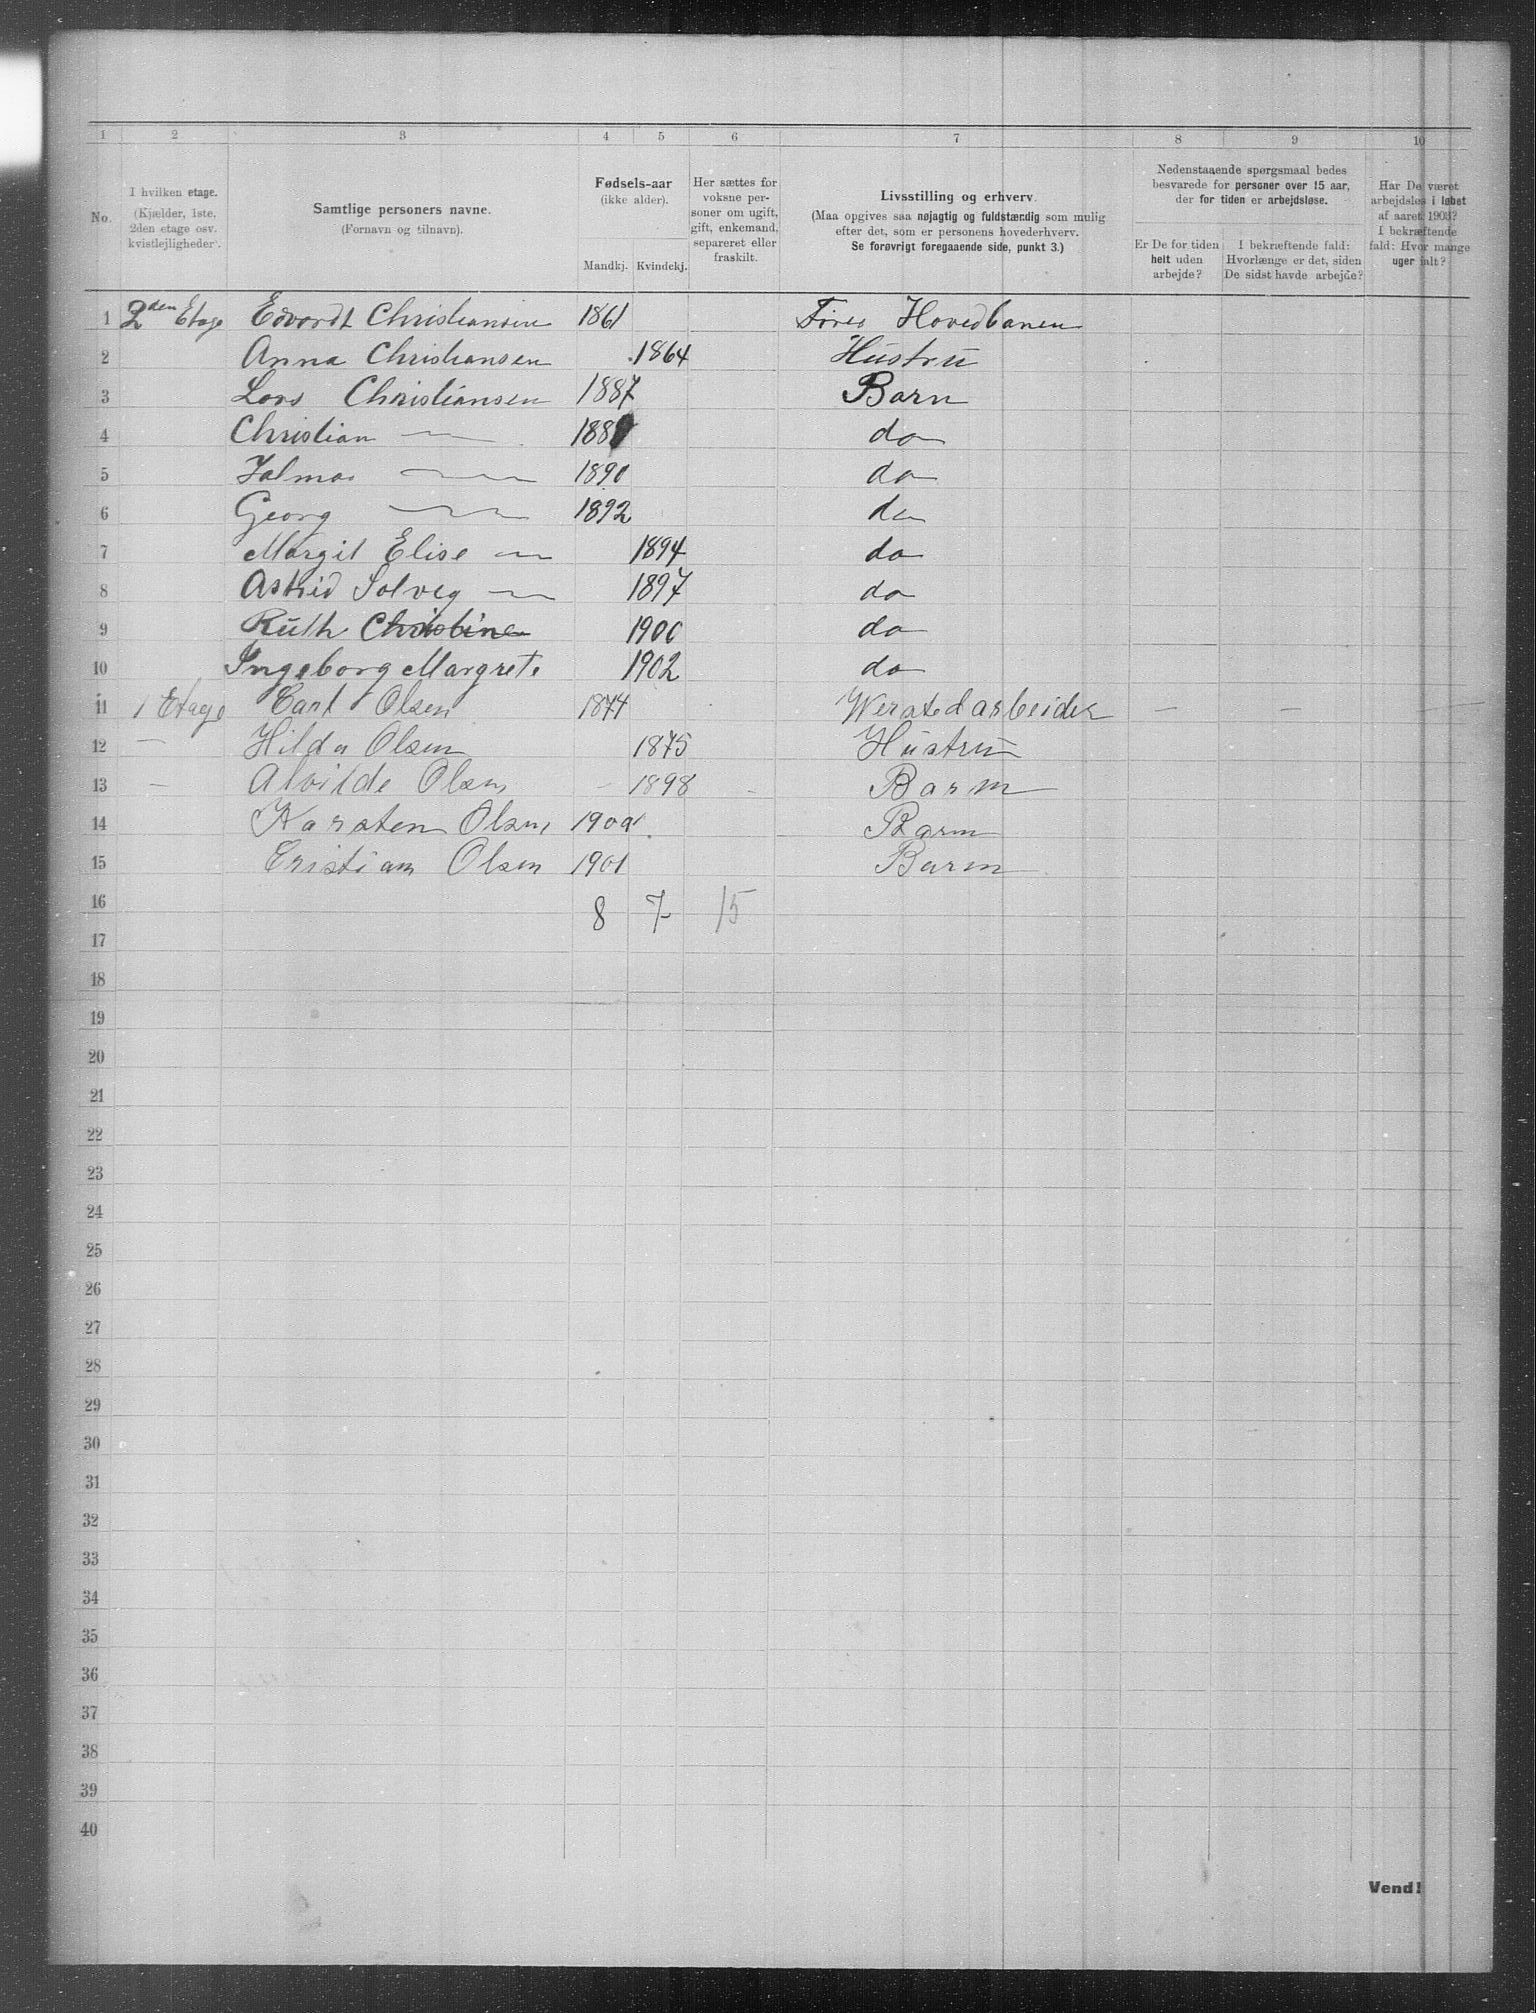 1 2 3 4 5 6 7 8 9 10
No.
I hvilken etage.
(Kjælder, 1ste, 2den etage osv. kvistlejligheder.)
Samtlige personers navne.
(Fornavn og tilnavn).
Fødsels-aar
(ikke alder).
Mandkj. Kvindekj.
Her sættes for voksne personer om ugift, gift, enkemand, separeret eller fraskilt.
Livsstilling og erhverv.
(Maa opgives saa nøjagtig og fuldstændig som mulig efter det, som er personens hovederhverv.
Se forøvrigt foregaaende side, punkt 3.)
Nedenstaaende spørgsmaal bedes besvarede for personer over 15 aar, der for tiden er arbejdsløse.
Er De for tiden helt uden arbejde?
I bekræftende fald: Hvorlænge er det, siden De sidst havde arbejde?
Har De været arbejdsløs i løbet af aaret 1903?
I bekræftende fald: Hvor mange uger ialt?
1 2den Etage Edvardt Christiansen 1861 Hovedbanen
2 Anna Christiansen 1864 Hustru
3 Lars Christiansen 1887 Barn
4 Christian — 1889 do
5 Jalmar — 1890 do
6 Georg — 1892 do
7 Margit Elise — 1894 do
8 Astrid Solveg — 1897 do
9 Ruth Christine 1900 do
10 Ingeborg Margrete 1902 do
11 1 Etage Carl Olsen 1874 Werstedarbeider — — —
12 — Hilda Olsen 1875 Hustru
13 — Alvilde Olsen - 1898 - Barn
14 Karsten Olsen 1900 Barn
15 Cristian Olsen 1901 Barn
16 8 7 15
17
18
19
20
21
22
23
24
25
26
27
28
29
30
31
32
33
34
35
36
37
38
39
40
Vend!